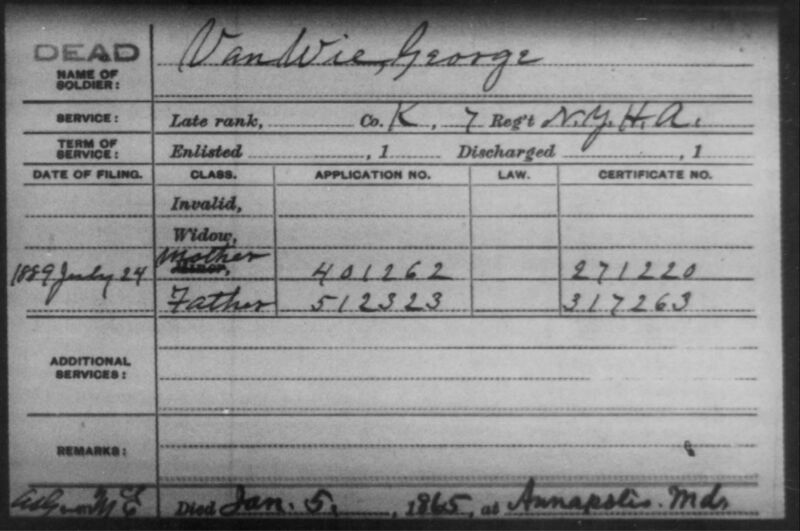 DEAD Van Wie, George
NAME OF SOLDIER:
SERVICE: Late rank, Co. K, 7 Reg't N.Y.H.A.
TERM OF SERVICE: Enlisted , 1 Discharged , 1
DATE OF FILING. CLASS. APPLICATION NO. LAW. CERTIFICATE NO.
Invalid,
Widow,
Mother
1889 July 24 Minor, 401262 271220
Father 512323 317263
ADDITIONAL SERVICES:
REMARKS:
Died Jan. 5, 1865, at Annapolis. Md.